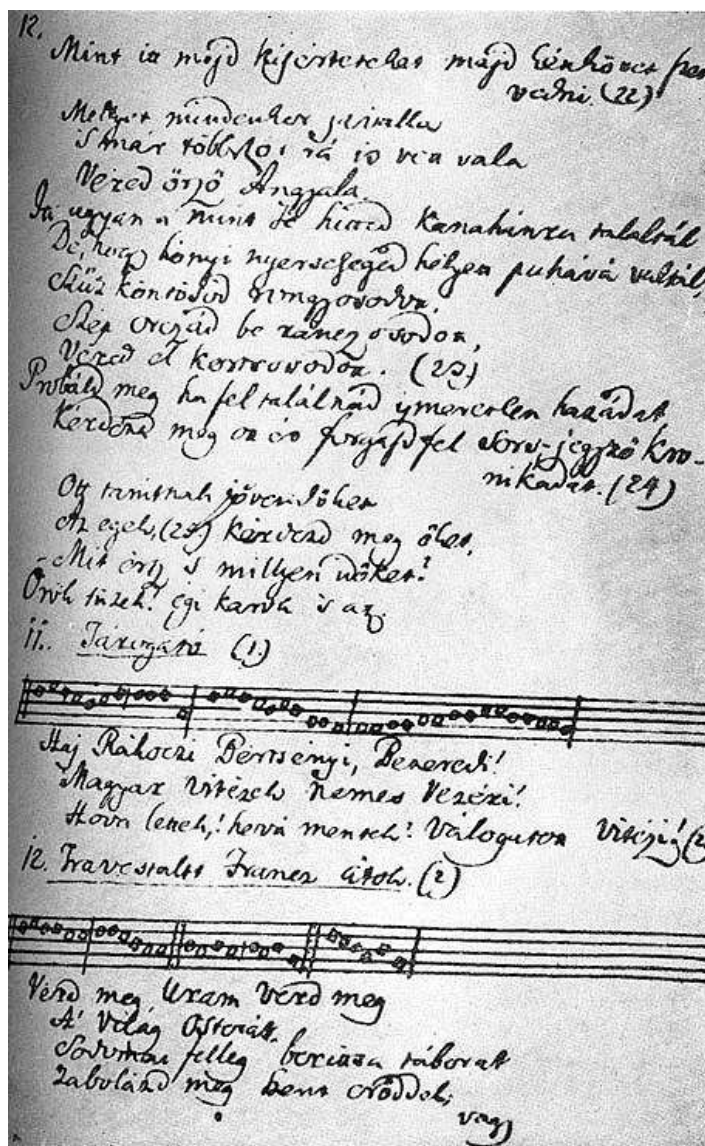 12.
Mint ia majd Kisértetekat majd kénkövet szen
vedni. (22)
Mellyet mindenkor javalla
is már többször rá is ven vala
Véred őrző Angyala.
Ja ugyan a mint Te hitted Kanahánra találtál
De, hogy könyi nyerseséged helyen puhává váltál,
Szűz köntösöd
Szép orczád be ránczosodon,
Véred el korcsosodon. (23)
Probáld meg ha fel találnád ismeretlen hazádat
Kérdezd meg és forgasd fel Sors-jegyző Kro-
nikádat. (24)
Ott tanitnak jövendőket
Az egek, (25) kérdezd meg őket,
Mit érsz s millyen időket?
Örök tüzek! égi karok is az
11. Tárogató (1.)
Haj Rákoczi Bertsényi, Bezeredi!
Magyar Vitézek Nemes Vezéri!
Hová lettek,! hová mentek? Válogatott Vitézi! (2
12. Travestált Francz átok. (2)
Verd meg, Uram Verd meg
A' Világ Ostorát,
Sodomai felleg borissa táborát
Zabolázd meg szent erőddel;
vagy